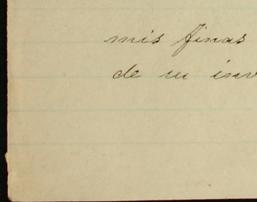 mis finas
de su inv